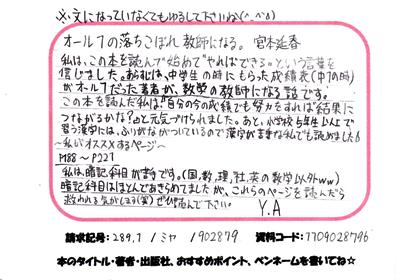 ※文になっていなくてもゆるして下さいね(^_^;)
オール1の落ちこぼれ教師になる。 宮本延春
私は、この本を読んで始めて"やればできる"という言葉を
信じました。あらすじは、中学生の時にもらった成績表(中1の時)
がオール1だった著者が、数学の教師になる話です。
この本を読んだ私は「自分の今の成績でも努力をすれば結果に
つながるかな?」と元気づけられました。あと、小学校5年生以上で
習う漢字には、ふりがながついているので漢字が苦手な私でも読めました
~私のオススメするページ~
P188~P221
私は、暗記科目が苦手です。(国、数、理、社、英の数学以外ww)
暗記科目はほとんどあきらめてましたが、これらのページを読んだら
救われる気がします(笑) ぜひ読んで下さい。
Y.A
請求記号:289.1 / ミヤ / 902879 資料コード:7709028796
本のタイトル・著者・出版社、おすすめポイント、ペンネームを書いてね☆